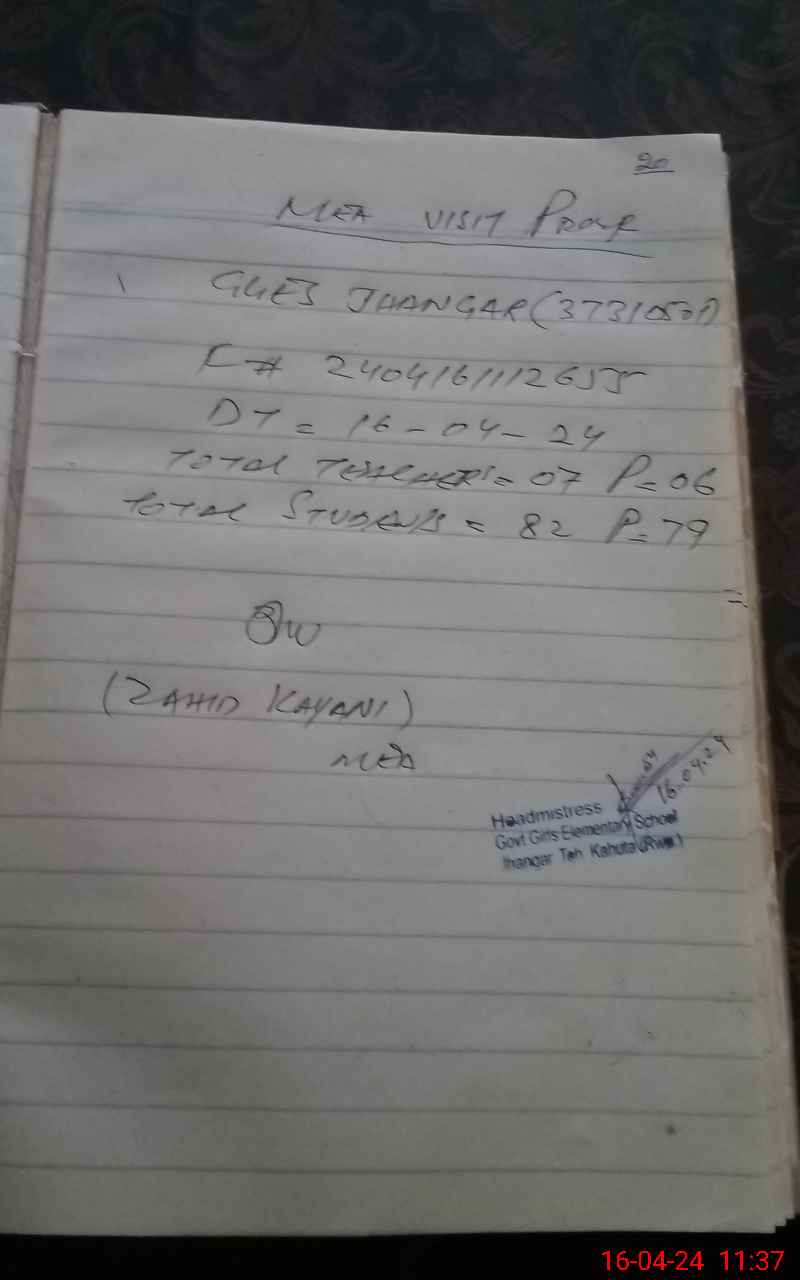 20
MEA VISIT PROOF
GGES JHANGAR (37310501)
C# 2404161112655
DT = 16-04-24
TOTAL TEACHERS = 07 P=06
TOTAL STUDENTS = 82 P=79
(ZAHID KAYANI)
MEA
16-04-24
Headmistress
Govt Girls Elementary School
Jhangar Teh Kahuta (Rwp.)
16-04-24 11:37